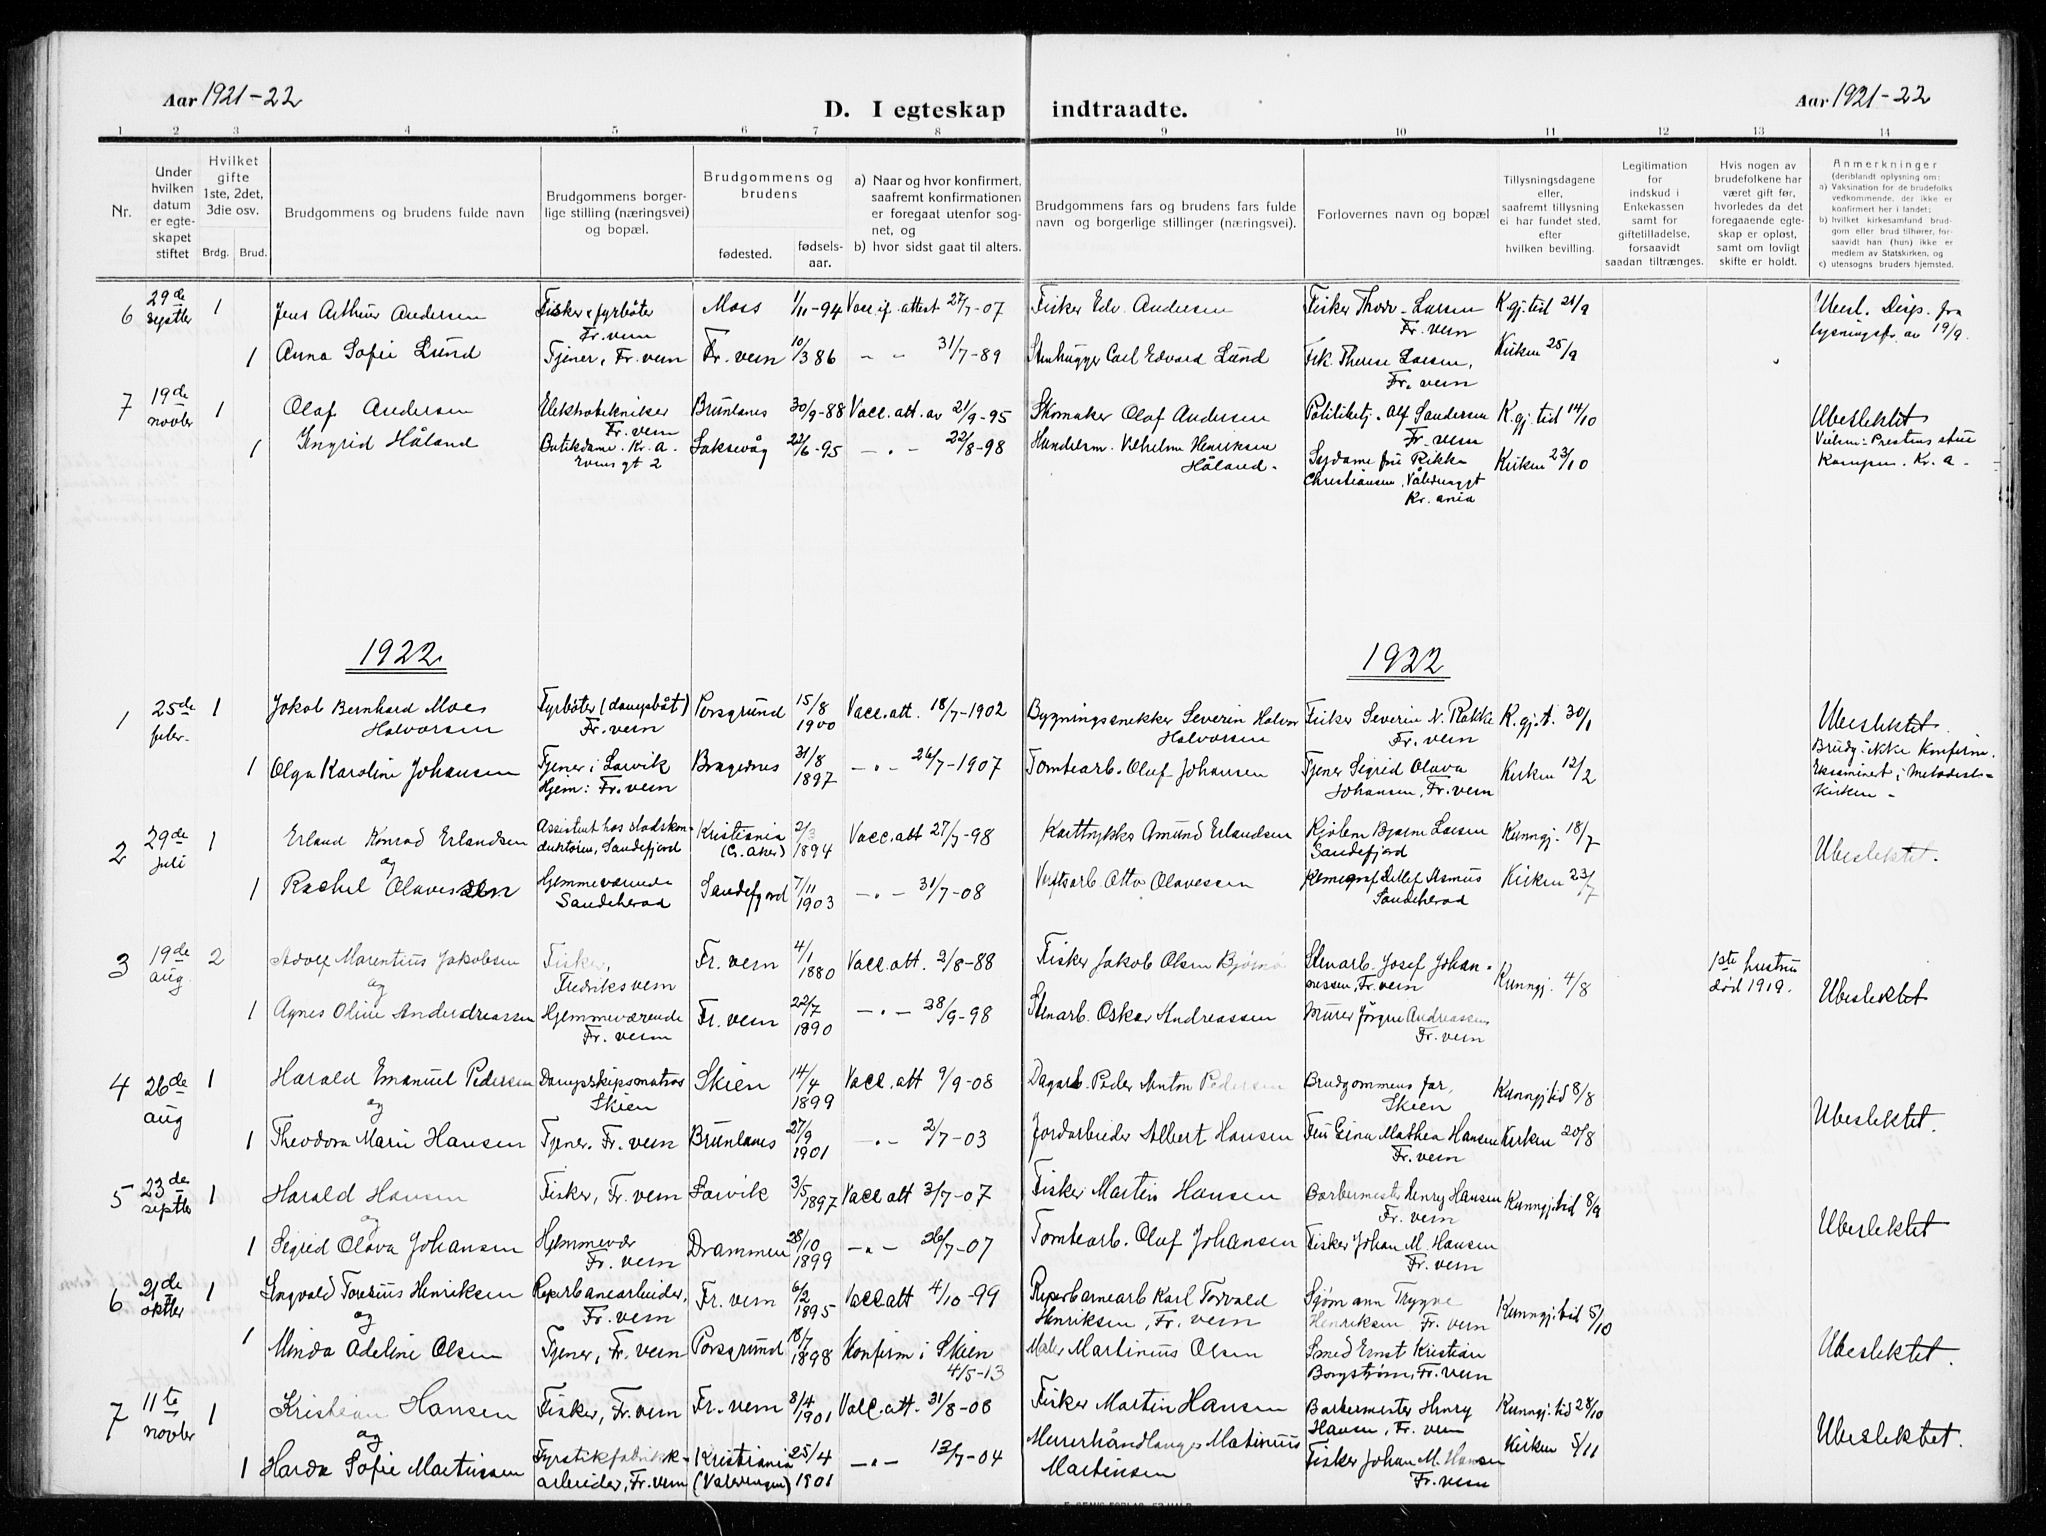 Aar 1921-22
D. I egteskap indtraadte.
Aar 1921-22
1 2 3 4 5 6 7 8 9 10 11 12 13 14
Nr.
Under hvilken datum er egteskapet stiftet
Hvilket gifte 1ste, 2det, 3die osv.
Brdg. Brud.
Brudgommens og brudens fulde navn
Brudgommens borgerlige stilling (næringsvei) og bopæl.
Brudgommens og brudens
fødested.
fødselsaar.
a) Naar og hvor konfirmert, saafremt konfirmationen er foregaat utenfor sognet, og
b) hvor sidst gaat til alters.
Brudgommens fars og brudens fars fulde navn og borgerlige stillinger (næringsvei).
Forlovernes navn og bopæl
Tillysningsdagene eller, saafremt tillysning ei har fundet sted, efter hvilken bevilling.
Legitimation for indskud i Enkekassen samt for giftetilladelse, forsaavidt saadan tiltrænges.
Hvis nogen av brudefolkene har været gift før, hvorledes da det foregaaende egteskap er opløst, samt om lovligt skifte er holdt.
Anmerkninger (deriblandt oplysning om:
a) Vaksination for de brudefolks vedkommende, der ikke er konfirmert her i landet;
b) hvilket kirkesamfund brudgom eller brud tilhører, forsaavidt han (hun) ikke er medlem av Statskirken, og
c) utensogns bruders hjemsted.
6 29de septbr 1 Jens Arthur Andersen Fisker, fyrbøter Fr. vern Moss 1/11-94 Vacc. if. attest 27/7-07 Fisker Edv. Andersen Fisker Thorv. Larsen Fr. vern K.gj.tid 21/9 Ubesl. Disp. fra lysningsfr. av 19/9.
1 Anna Sofie Lund Tjener, Fr. vern Fr. vern 10/3 86 - - 31/7-89 Stenhugger Carl Edvard Lund Frk. Therese Larsen, Fr. vern Kirken 25/9
7 19de novbr 1 Olaf Andersen Elektrotekniker Fr. vern Brunlanes 30/9-88 Vacc. att. av 21/9-95 Skomaker Olaf Andersen Politibetj. Alf Sandersen Fr. vern K.gj.tid 14/10 Ubeslektet
1 Ingrid Håland Butikdame. Kr.a. Laksevåg 22/6-95 - " - 22/8-98 Vilhelm Henriksen Håland. Sydame fru Rikke Christiansen, Kr.ania Kirken 23/10 Kampen. Kr.a -
1922
1922
1 25de febr. 1 Jakob Bernhard Moes Halvorsen Fyrbøter (dampbåt) Fr. vern Porsgrund 15/8 1900 Vacc. att. 18/7-1902 Bygningssnekker Severin Halvor Halvorsen Fisker Severin N. Rakke Fr. vern K.gj.t. 30/1 Ubeslektet.
1 Olga Karoline Johansen Tjener i Larvik Hjem: Fr. vern Bragernes 31/8 1897 - " - 26/7-1907 Tomtearb. Olaf Johansen Tjener Sigrid Olava Johansen, Fr. vern Kirken 12/2 Brudg. ikke konfirm. Eksaminert i Metodistkirken -
2 29de juli 1 Erland Konrad Erlandsen Assistent hos Stadskonduktøren, Sandefjord Kristiania (V. Aker) 2/3 1894 Vacc. att 27/7-98 Karttrykker Amund Erlandsen Bjarne Larsen Sandefjord Kunngj. 18/7 Ubeslektet.
og
1 Rachel Olavessen Hjemmeværende Sandeherad Sandefjord 7/11 1903 - " - 31/7-08 Verftsarb Otto Olavessen Detlef Asmus Sandeherad Kirken 23/7
3 19de aug. 2 Adolf Marentius Jakobsen Fisker, Fredriksvern Fr. vern 4/1 1880 Vacc. att. 2/8-88 Fisker Jakob Olsen Bjørnø Stenarb. Josef Johannessen, Fr. vern Kunngj. 4/8 1ste hustru død 1919. Ubeslektet
og
1 Agnes Oline Anderdreassen Hjemmeværende Fr. vern Fr. vern 22/7 1890 - " - 28/9-98 Stenarb. Oskar Andreassen Murer Jørgen Andreassen Fr. vern
4 26de aug 1 Harald Emanuel Pedersen Dampskipsmatros Skien Skien 14/4 1899 Vacc. att 9/9-08 Dagarb. Peder Anton Pedersen Brudgommens far, Skien Kunngj.tid 8/8 Ubeslektet.
og
1 Theodora Marie Hansen Tjener. Fr. vern Brunlanes 27/9 1901 - " - 2/7-03 Jordarbeider Albert Hansen Fru Gina Mathea Hansen Fr. vern Kirken 20/8
5 23de septbr 1 Harald Hansen Fisker, Fr. vern Larvik 3/5 1897 Vacc att 3/7-07 Fisker Martin Hansen Barbermester Henry Hansen Fr. vern Kunngj.tid 8/9 Ubeslektet
og
1 Sigrid Olava Johansen Hjemmevær Fr. vern Drammen 28/10 1899 - " - 26/7-07 Tomtearb. Olaf Johansen Fisker Johan M. Hansen Fr. vern
6 21de oktbr 1 Ingvald Torenius Henriksen Reperbanearbeider, Fr. vern Fr. vern 6/2 1895 Vacc att 4/10-99 Reperbanearb Karl Torvald Henriksen, Fr. vern Sjømann Trygve Henriksen Fr. vern Kunngj.tid 5/10 Ubeslektet.
og
1 Minda Adeline Olsen Tjener, Fr. vern Porsgrund 18/7 1898 Konfirm i Skien 4/5-13 Maler Martinius Olsen Smed Ernst Kristian Borgstrøm, Fr. vern
7 11te novbr 1 Kristian Hansen Fisker, Fr. vern Fr. vern 8/4 1901 Vacc. att. 31/8-08 Fisker Martin Hansen Barbermester Henry Hansen, Fr. vern Kunngj.tid 28/10 Ubeslektet.
og
1 Harda Sofie Martinsen Fyrstikfabrikkarbeider, Fr. vern Kristiania (Valerengen) 25/4 1901 - " - 13/7-04 Murerhåndlanger Martinius Martinsen Fisker Johan M. Hansen Fr. vern Kirken 5/11